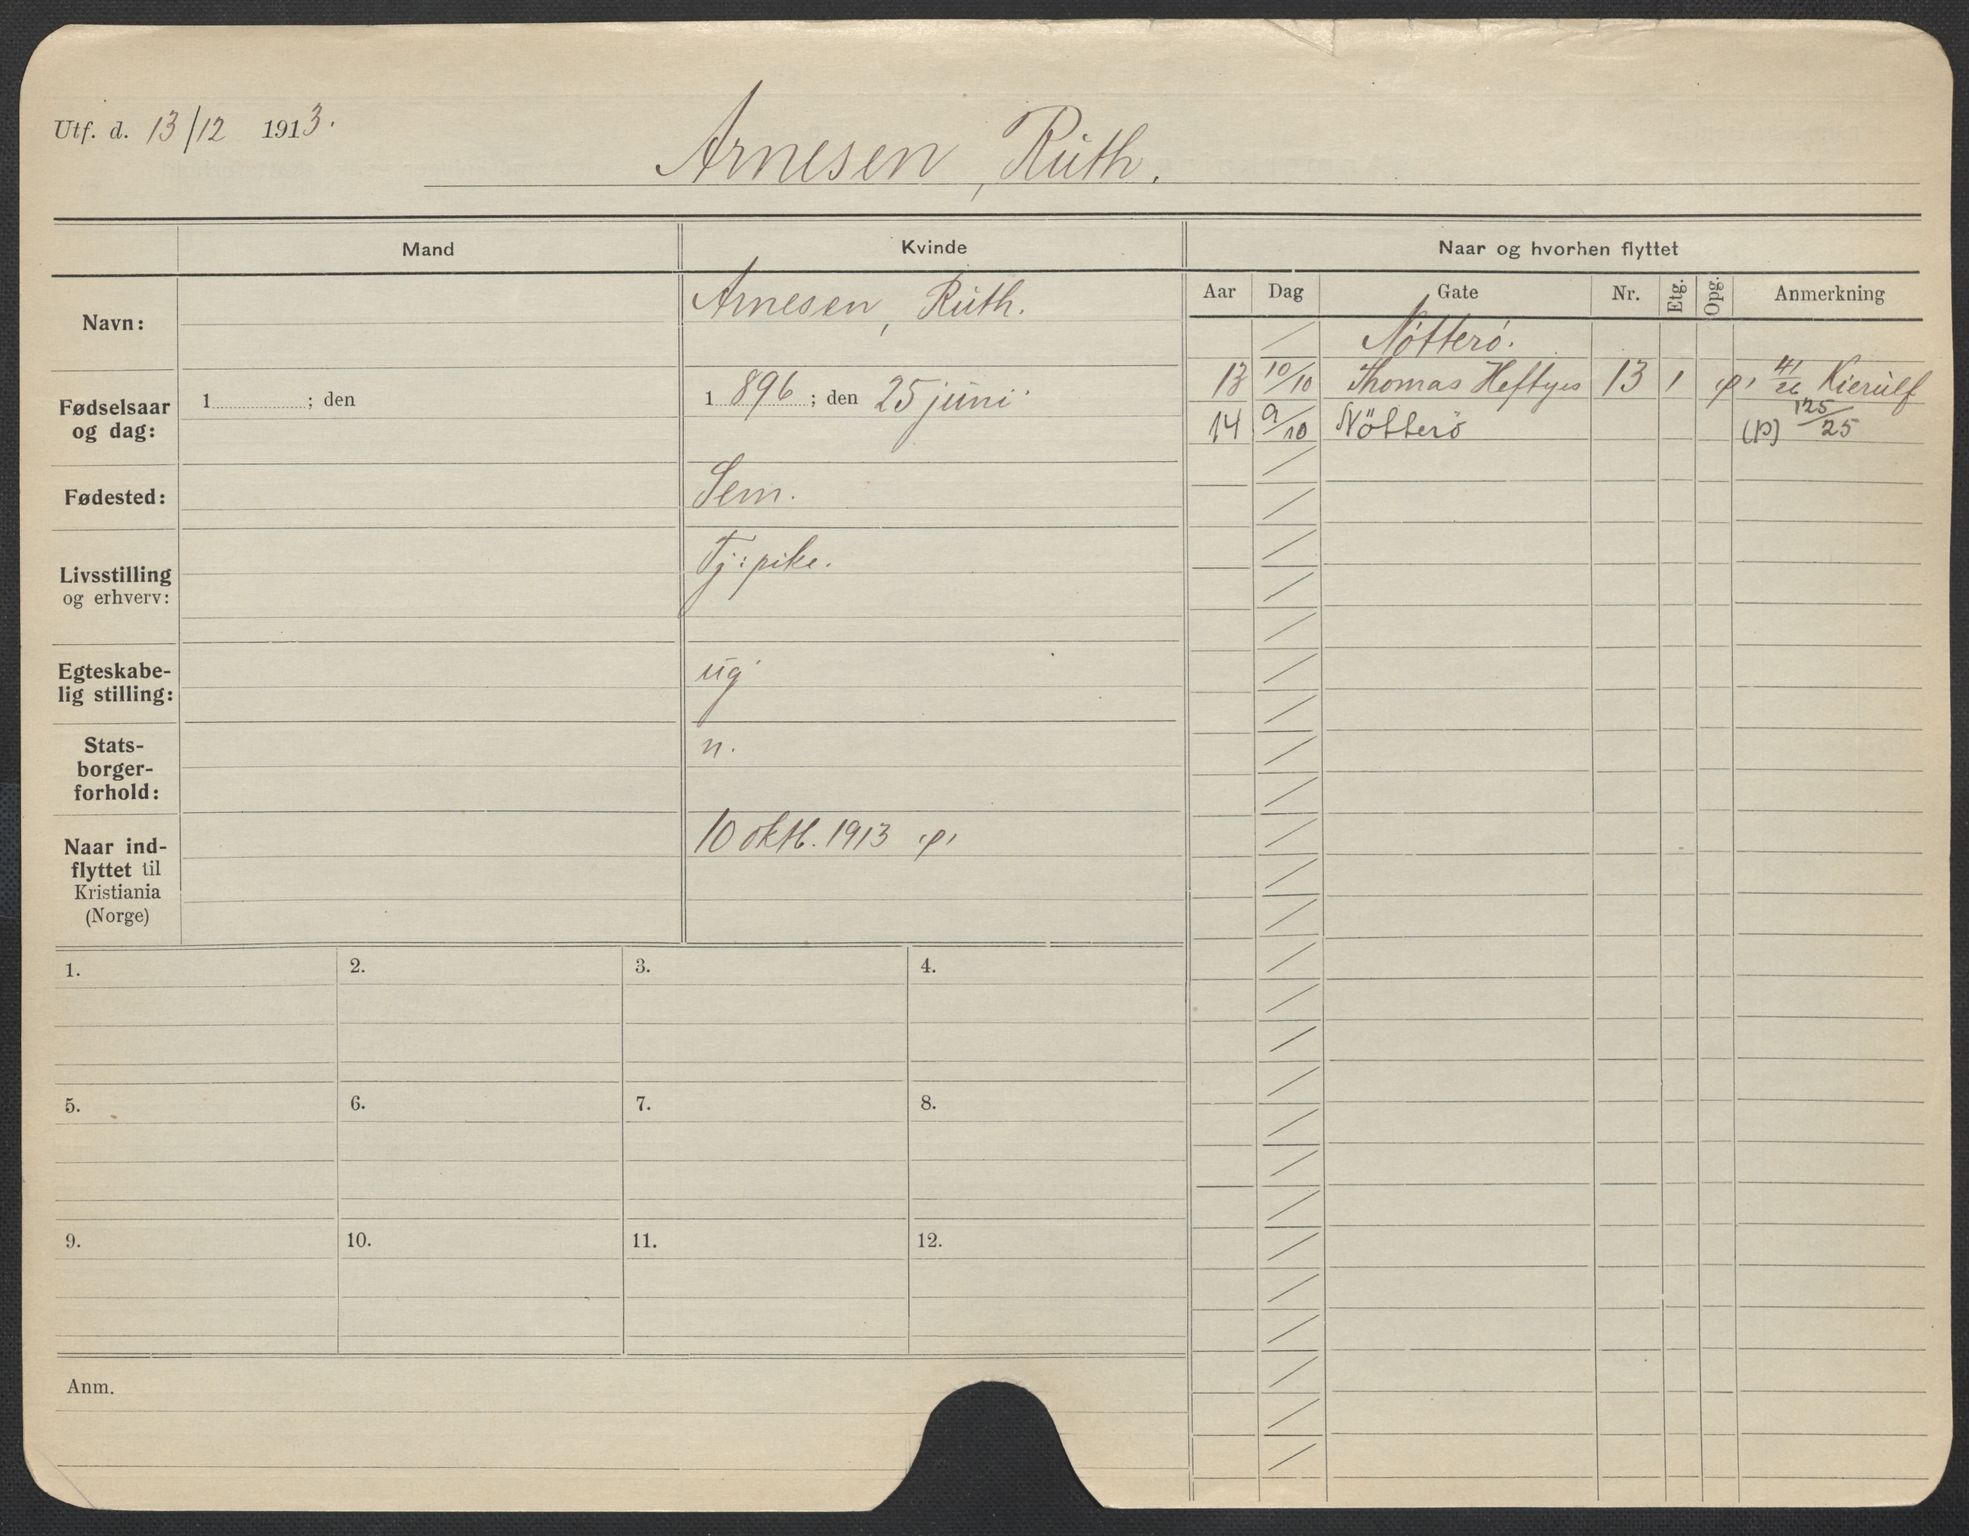 Utf. d. 13/12 1913.
Arnesen, Ruth.
Mand
Kvinde
Naar og hvorhen flyttet
Aar Dag Gate Nr. Etg. Opg. Anmerkning
Navn:
Arnesen, Ruth.
Fødselsaar og dag:
1 ; den
1 896 ; den 25 juni
Fødested:
Sem.
Livsstilling og erhverv:
Tj: pike.
Egteskabe-
lig stilling:
ug
Stats-
borger-
forhold:
n.
Naar ind-
flyttet til
Kristiania
(Norge)
10 okt. 1913
Nøtterø.
13 10/10 Thomas Heftyes 13 1 41/26 Kierulf
14 9/10 Nötterö (p) 125/25
1. 2. 3. 4.
5. 6. 7. 8.
9. 10. 11. 12.
Anm.